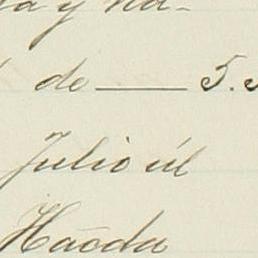 a y na-
de — 5.5
Julio úl
Hacda